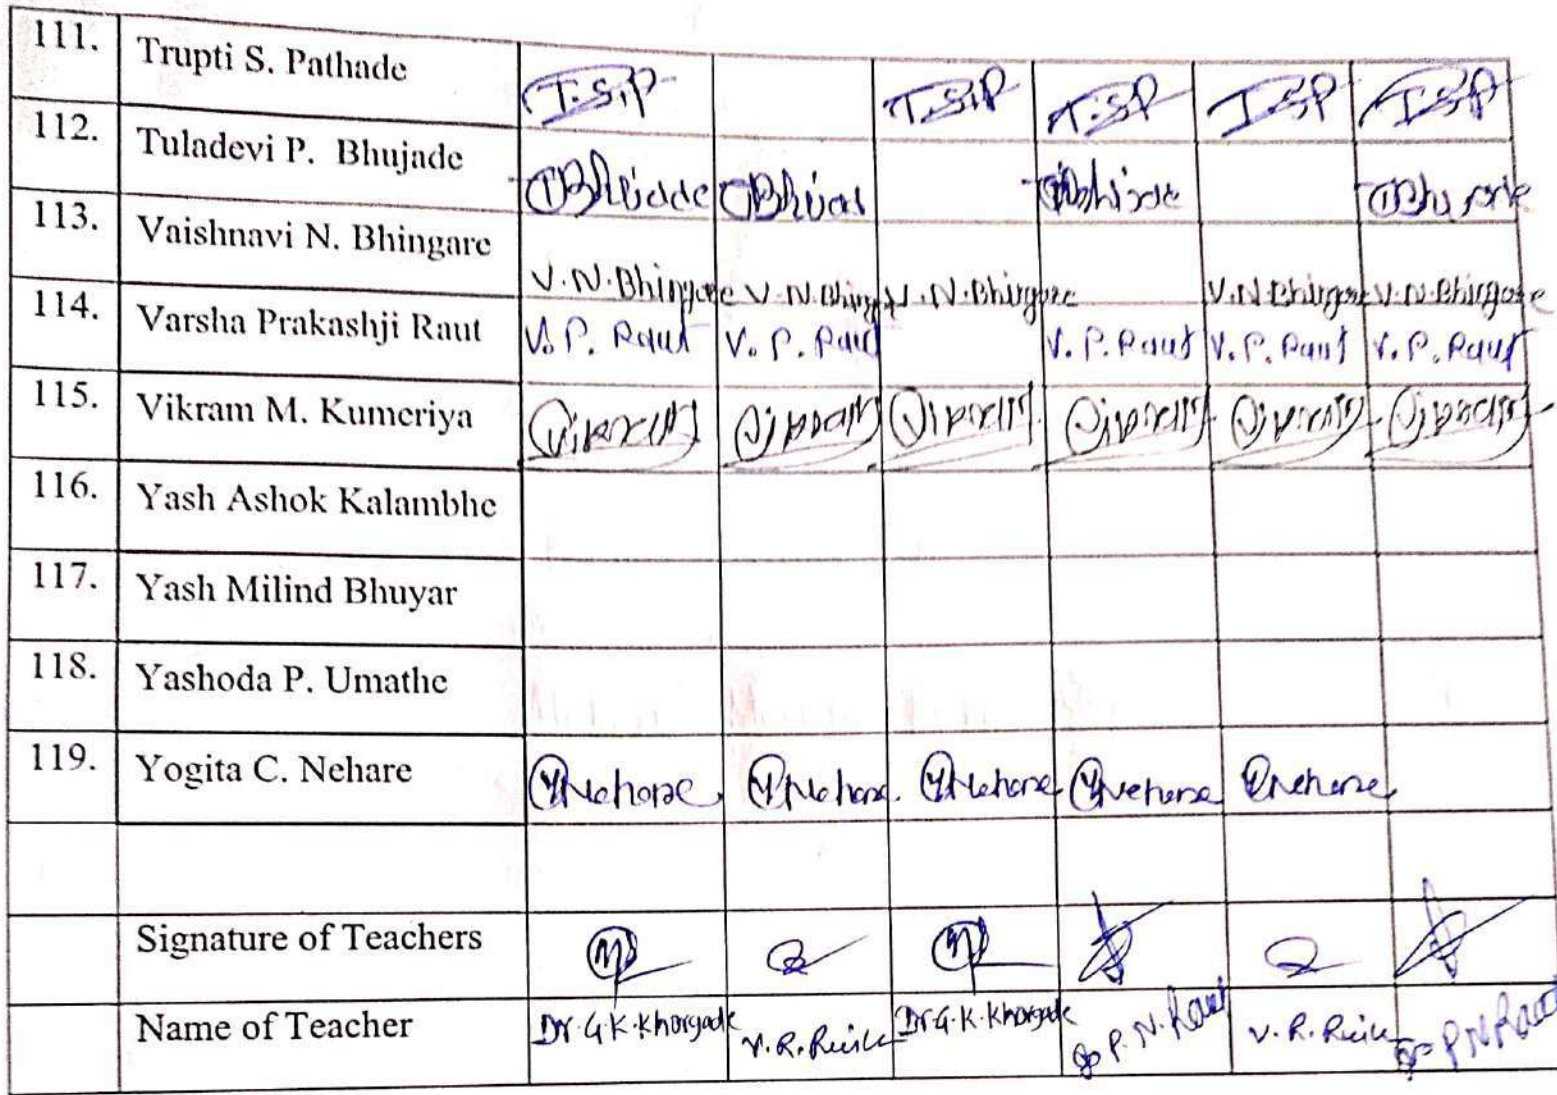 111. Trupti S. Pathade T.S.P T.S.P T.S.P T.S.P T.S.P
112. Tuladevi P. Bhujade
113. Vaishnavi N. Bhingare V.N.Bhingare V.N.Bhingare V.N.Bhingare V.N.Bhingare V.N.Bhingare
114. Varsha Prakashji Raut V.P. Raut V.P. Raut V.P. Raut V.P. Raut V.P. Raut
115. Vikram M. Kumeriya
116. Yash Ashok Kalambhe
117. Yash Milind Bhuyar
118. Yashoda P. Umathe
119. Yogita C. Nehare YNehare YNehare YNehare YNehare YNehare
Signature of Teachers
Name of Teacher Dr.G.K.Khorgade Dr.G.K.Khorgade P.N.Raut P.N.Raut